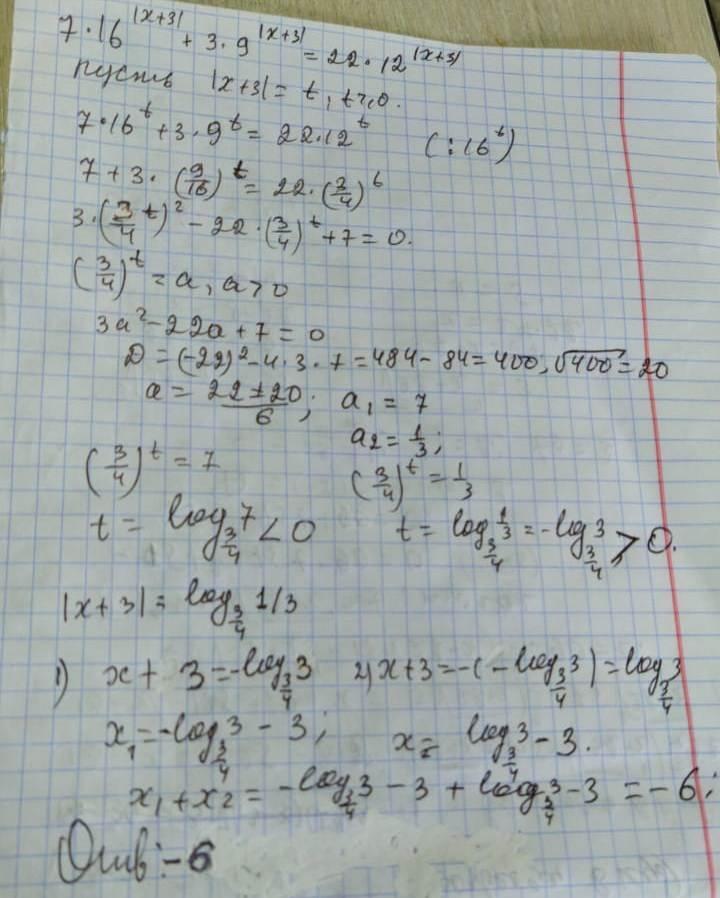 7·16^|x+3| + 3·9^|x+3| = 22·12^|x+3|
пусть |x+3| = t, t≥0.
7·16^t + 3·9^t = 22·12^t (:16^t)
7 + 3·(9/16)^t = 22·(3/4)^t
3·(3/4^t)^2 - 22·(3/4)^t + 7 = 0.
(3/4)^t = a, a>0
3a^2 - 22a + 7 = 0
D = (-22)^2 - 4·3·7 = 484 - 84 = 400, √400 = 20
a = (22±20)/6; a₁ = 7
a₂ = 1/3;
(3/4)^t = 7 (3/4)^t = 1/3
t = log_{3/4} 7 < 0 t = log_{3/4} 1/3 = -log_{3/4} 3 > 0.
|x+3| = log_{3/4} 1/3
1) x + 3 = -log_{3/4} 3 2) x+3 = -(-log_{3/4} 3) = log_{3/4} 3
x₁ = -log_{3/4} 3 - 3; x₂ = log_{3/4} 3 - 3.
x₁ + x₂ = -log_{3/4} 3 - 3 + log_{3/4} 3 - 3 = -6;
Отв: -6